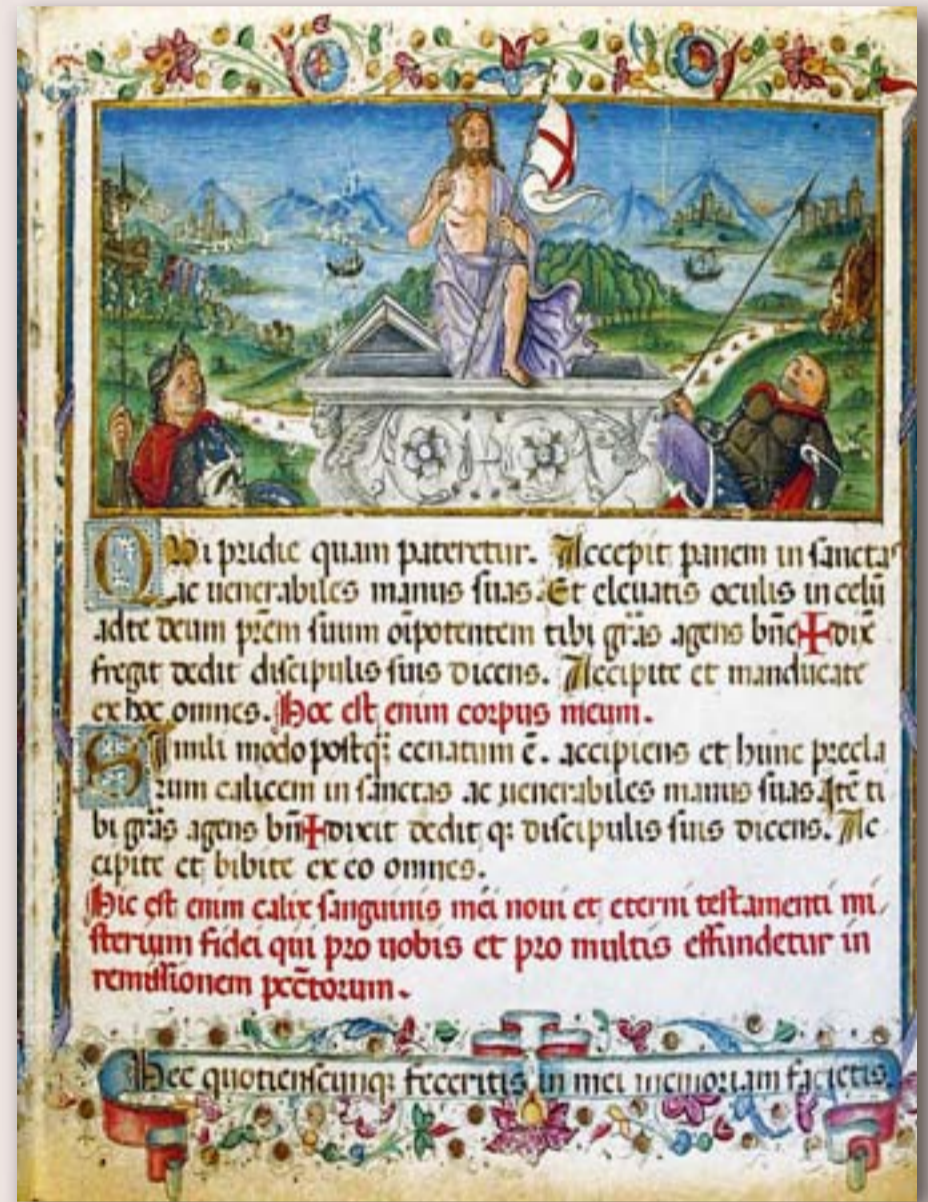 Qui pridie quam pateretur. Accepit panem in sancta
ac uenerabiles manus suas. Et eleuatis oculis in celū
adte deum prēm suum oīpotentem tibi grās agens bn̄e✠dixit
fregit dedit discipulis suis dicens. Accipite et manducate
ex hoc omnes. Hoc est enim corpus meum.
Simili modo postq; cenatum ē. accipiens et hunc precla
rum calicem in sanctas ac uenerabiles manus suas. Itē ti
bi grās agens bn̄✠dixit dedit q; discipulis suis dicens. Ac
cipite et bibite ex eo omnes.
Hic est enim calix sanguinis mei noui et eterni testamenti mi
sterium fidei qui pro uobis et pro multis effundetur in
remissionem pctōrum.
Hec quotienscunq; feceritis in mei memoriam facietis.